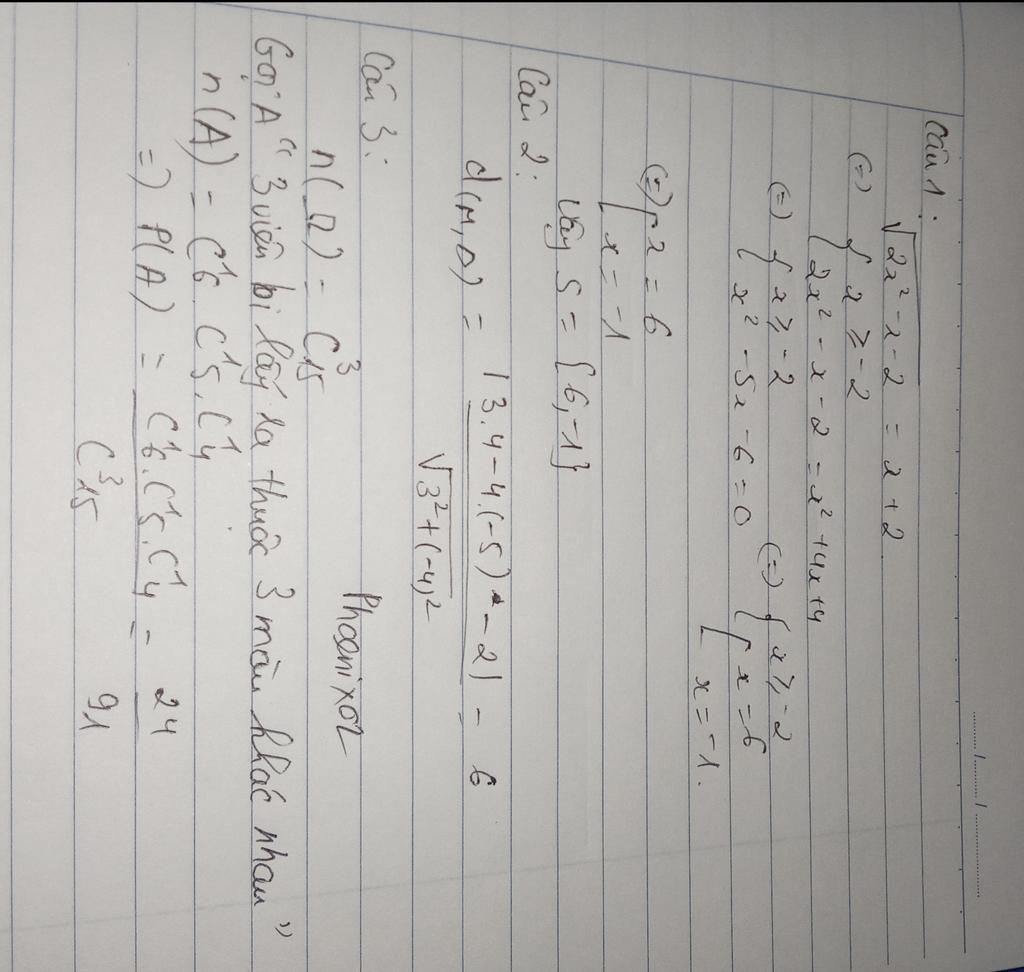 Câu 1:
√2x² - x - 2 = x + 2
(=) { x ≥ -2
{ 2x² - x - 2 = x² + 4x + 4
(=) { x ≥ -2
{ x² - 5x - 6 = 0
(=) { x ≥ -2
[ x = 6
[ x = -1.
(=) [ x = 6
[ x = -1
Vậy S = {6, -1}
Câu 2:
d(M, Δ) = |3.4 - 4.(-5) - 2| / √3² + (-4)² = 6
Phoenix02
Câu 3:
n(Ω) = C³15
Gọi A "3 viên bi lấy ra thuộc 3 màu khác nhau"
n(A) = C¹6. C¹5. C¹4
=) P(A) = C¹6. C¹5. C¹4 / C³15 = 24 / 91